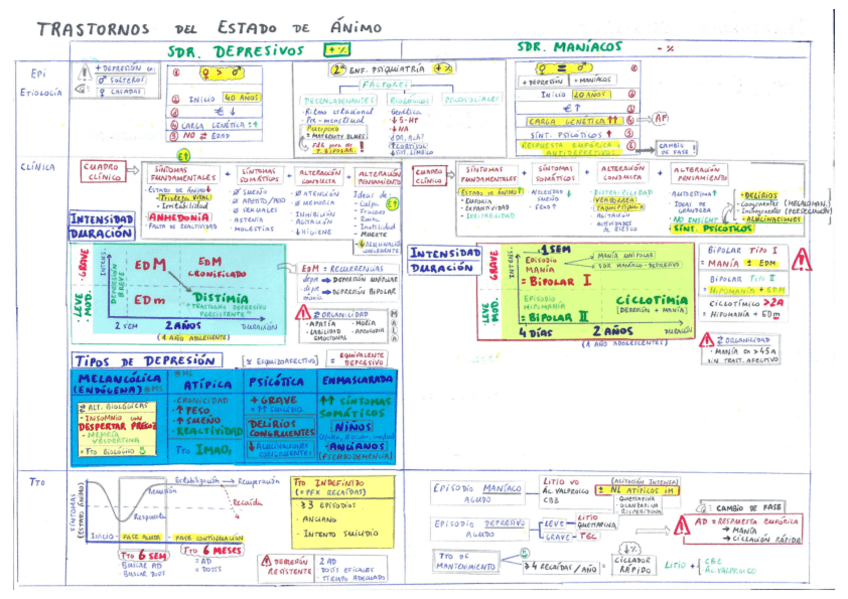 TRASTORNOS DEL ESTADO DE ÁNIMO
SDR. DEPRESIVOS +%
SDR. MANÍACOS -%
EPI
ETIOLOGÍA
+ DEPRESIÓN
♂ SOLTEROS
♀ CASADAS
♀ > ♂
INICIO 40 AÑOS
€ ↓
CARGA GENÉTICA: ↑
NO = EDAD
2ª ENF. PSIQUIATRÍA +%
FACTORES
DESENCADENANTES
Ritmo estacional
Pre-menstrual
Puerperio
BIOLÓGICOS
Genética
↓ 5-HT
↓ NA
PSICOSOCIALES
♀ = ♂
+ DEPRESIÓN
+ MANÍACOS
INICIO 20 AÑOS
€ ↑
CARGA GENÉTICA ↑↑
AP
SÍNT. PSICÓTICOS ↑
RESPUESTA EUFÓRICA
ANTIDEPRESIVOS
CAMBIO
DE FASE !
CLÍNICA
CUADRO
CLÍNICO
SÍNTOMAS
FUNDAMENTALES
ESTADO DE ÁNIMO ↓
Tristeza vital
Irritabilidad
ANHEDONIA
FALTA DE REACTIVIDAD
+ SÍNTOMAS
SOMÁTICOS
SUEÑO
APETITO/PESO
SEXUALES
ASTENIA
MOLESTIAS
+ ALTERACIÓN
CONDUCTA
ATENCIÓN
MEMORIA
INHIBICIÓN
AGITACIÓN
↓ HIGIENE
+ ALTERACIÓN
PENSAMIENTO
Ideas de:
Culpa
Ruina
Inutilidad
MUERTE
CUADRO
CLÍNICO
SÍNTOMAS
FUNDAMENTALES
ESTADO DE ÁNIMO ↑
EUFORIA
EXPANSIVIDAD
IRRITABILIDAD
+ SÍNTOMAS
SOMÁTICOS
NECESIDAD
SUEÑO
SEXO ↑
+ ALTERACIÓN
CONDUCTA
DISTRAIBILIDAD
VERBORREA
AGITACIÓN
+ ALTERACIÓN
PENSAMIENTO
AUTOESTIMA ↑
IDEAS DE
GRANDEZA
NO INSIGHT
SÍNT. PSICÓTICOS
DELIRIOS
ALUCINACIONES
INTENSIDAD
DURACIÓN
GRAVE
LEVE
MOD.
INTENS.
DEPRESIÓN
BREVE
EDM
EDM
CRONIFICADO
EDm
DISTIMIA
"TRASTORNO DEPRESIVO
PERSISTENTE"
2 SEM
2 AÑOS
DURACIÓN
(1 AÑO ADOLESCENTES)
EDM = RECURRENCIAS
→ DEPRESIÓN UNIPOLAR
→ DEPRESIÓN BIPOLAR
ORGANICIDAD
APATÍA
LABILIDAD
EMOCIONAL
MORIA
INTENSIDAD
DURACIÓN
GRAVE
LEVE
MOD.
INTENS.
1 SEM
EPISODIO
MANÍA
= BIPOLAR I
MANÍA UNIPOLAR
SDR MANÍACO-DEPRESIVO
EPISODIO
HIPOMANÍA
= BIPOLAR II
CICLOTIMIA
(DEPRESIÓN + MANÍA)
4 DÍAS
2 AÑOS
DURACIÓN
(1 AÑO ADOLESCENTES)
BIPOLAR TIPO I
= MANÍA ± EDM
BIPOLAR TIPO II
= HIPOMANÍA + EDM
CICLOTÍMICO >2A
= HIPOMANÍA + EDm
ORGANICIDAD
TIPOS DE DEPRESIÓN
= EQUIVALENTE
DEPRESIVO
MELANCÓLICA
(ENDÓGENA)
ALT. BIOLÓGICAS
INSOMNIO CON
DESPERTAR PRECOZ
TTO BIOLÓGICO
ATÍPICA
CRONICIDAD
↑ PESO
↑ SUEÑO
REACTIVIDAD
TTO IMAO
PSICÓTICA
+ GRAVE
↑↑ SUICIDIO
DELIRIOS
CONGRUENTES
ALUCINACIONES
CONGRUENTES
ENMASCARADA
↑↑ SÍNTOMAS
SOMÁTICOS
NIÑOS
ANCIANOS
(PSEUDODEMENCIA)
TTO
SÍNTOMAS
(ESTADO ÁNIMO)
Estabilización → Recuperación
Remisión
Respuesta
Recaída
INICIO
FASE AGUDA
FASE CONTINUACIÓN
TTO 6 SEM
BUSCAR AD
BUSCAR DOSIS
TTO 6 MESES
= AD
= DOSIS
TTO INDEFINIDO
(= PFX RECAÍDAS)
≥ 3 EPISODIOS
ANCIANO
INTENTO SUICIDIO
DEPRESIÓN
RESISTENTE
2 AD
DOSIS EFICACES
TIEMPO ADECUADO
EPISODIO MANÍACO
AGUDO
LITIO VO
ÁC VALPROICO
CBZ
(AGITACIÓN INTENSA)
± NL ATÍPICOS IM
QUETIAPINA
OLANZAPINA
RISPERIDONA
EPISODIO DEPRESIVO
AGUDO
LEVE
LITIO
QUETIAPINA
GRAVE - TEC
CAMBIO DE FASE
AD = RESPUESTA EUFÓRICA
→ MANÍA
→ CICLACIÓN RÁPIDA
TTO DE
MANTENIMIENTO
≥ 4 RECAÍDAS / AÑO =
CICLADOR
RÁPIDO
LITIO +
CBZ
ÁC VALPROICO